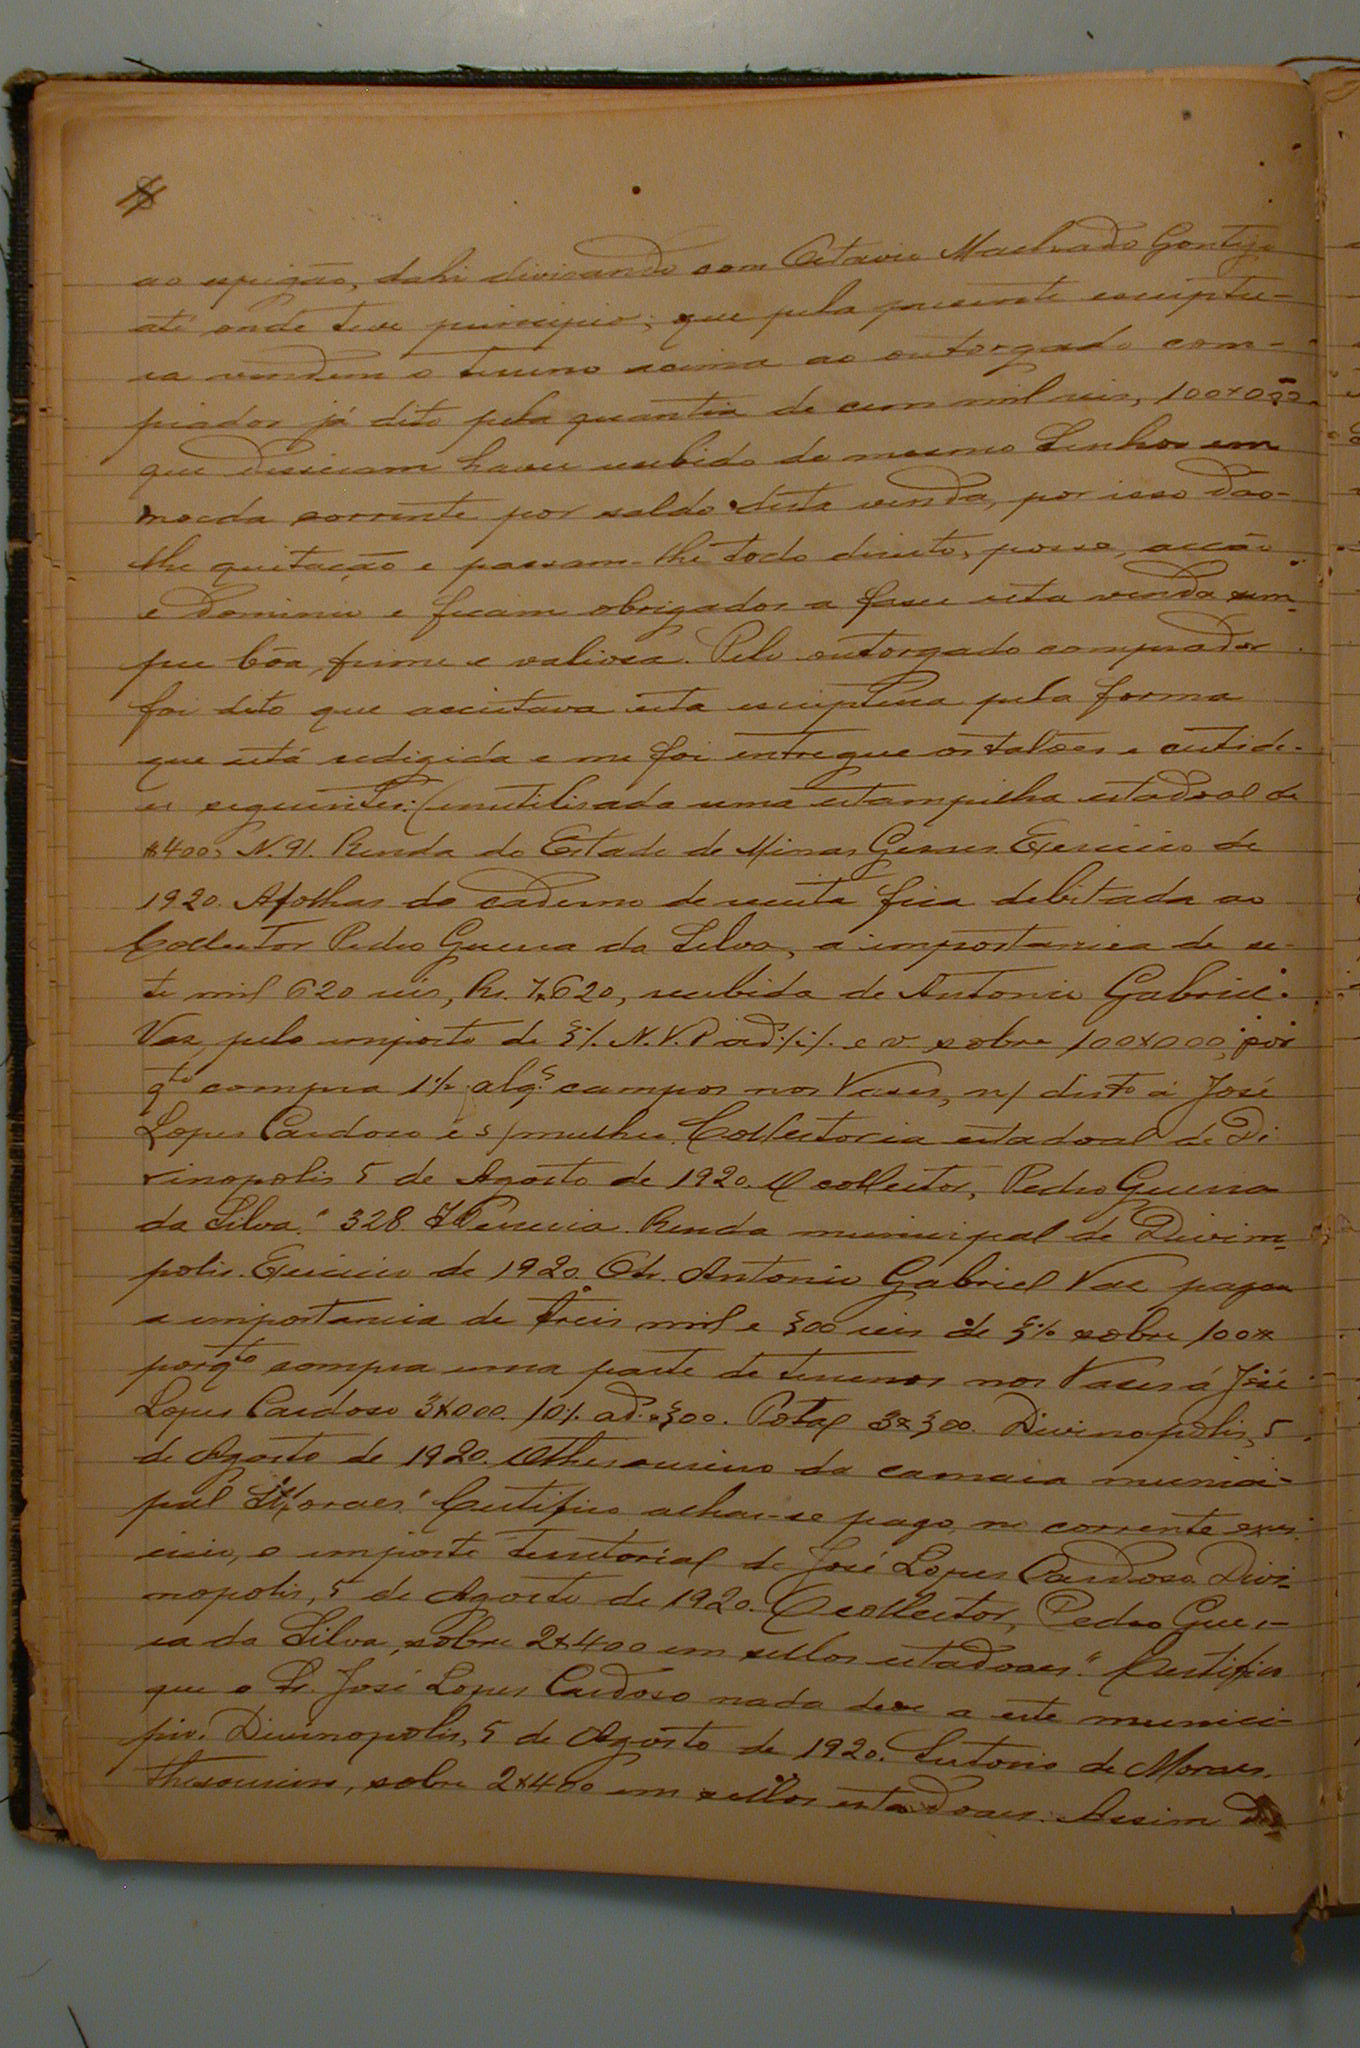 ao espigão, dahi divisando com Octavio Machado Gontijo
até onde teve principio; que pela presente escriptu-
ra vendem o terreno acima ao outorgado com-
prador já dito pela quantia de cem mil reis, 100$000
que disseram haver recebido do mesmo Senhor em
moeda corrente por saldo desta venda, por isso dão-
lhe quitação e passam-lhe todo direito, posse, acção
e dominio e ficam obrigados a faser esta venda sem-
pre bôa, firme e valiosa. Pelo outorgado comprador
foi dito que acceitava esta escriptura pela forma
que está redigida e me foi entregue os talões e certidõ-
es seguintes: (inutilisada uma estampilha estadoal de
$400, N. 91. Renda do Estado de Minas Geraes. Exercicio de
1920. A folhas do caderno de receita fica debitada ao
Collector Pedro Guerra da Silva, a importancia de se-
te mil 620 reis, Rs. 7$620, recebida de Antonio Gabriel
Vaz, pelo imposto de 5% N. V. P ad. % e v. sobre 100$000, por
qto compra 1½ alqs. campos nos Vases, n/ disto á José
Lopes Cardoso e s/ mulher. Collectoria estadoal de Di
vinopolis 5 de Agosto de 1920. O collector, Pedro Guerra
da Silva." 328. Renda municipal de Divino-
polis. Exercicio de 1920. O Sr. Antonio Gabriel Vaz pagou
a importancia de treis mil e 300 reis de 3% sobre 100$
porqto compra uma parte de terrenos nos Vases á José
Lopes Cardoso 3$000. 10% ad. $300. Total 3$300. Divinopolis, 5
de Agosto de 1920. O thesoureiro da camara munici-
pal Moraes." Certifico achar-se pago, no corrente exer-
cicio, o imposto territorial de José Lopes Cardoso. Divi-
nopolis, 5 de Agosto de 1920. O collector, Pedro Guer-
ra da Silva, sobre 2$400 em sellos estadoaes." Certifico
que o Sr. José Lopes Cardoso nada deve a este munici-
pio. Divinopolis, 5 de Agosto de 1920. de Moraes,
thesoureiro, sobre 2$400 em sellos estadoaes. Assim